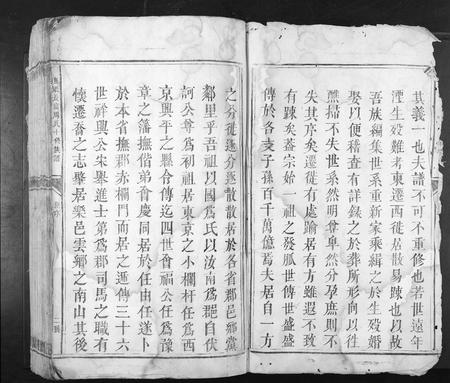 其義一也夫譜不可不重修也若世遠年
湮生歿難考東遷西徙居散易踈也以故
吾族編集世系重新家乘緝之於生歿婚
娶以便稽查有詳錄之於葬所形向以從
醮掃不失世系然明尊卑然分孕庶則不
失其序矣遷從有處踰居有方雖遐不致
有踈矣蓋宗始一祖之發胍世傳世盛盛
傳於各支子孫百千萬億焉夫居自一方
之分徙遙分逐散散居於各省郡邑鄉黨
鄰里乎吾祖以國爲氏以汝南爲郡自伏
訶公尊爲初祖居東京之小欄杆任公爲
京興平之縣令傳迄四世會福公任爲豫
章之藩撫偕弟會慶同居於任由任遂卜
於本省撫郡赤欄門而居之逓傳三十六
世祥興公朱舉進士第爲郡司馬之職有
懷遷喬之志擧居樂邑雲鄉之南山其後